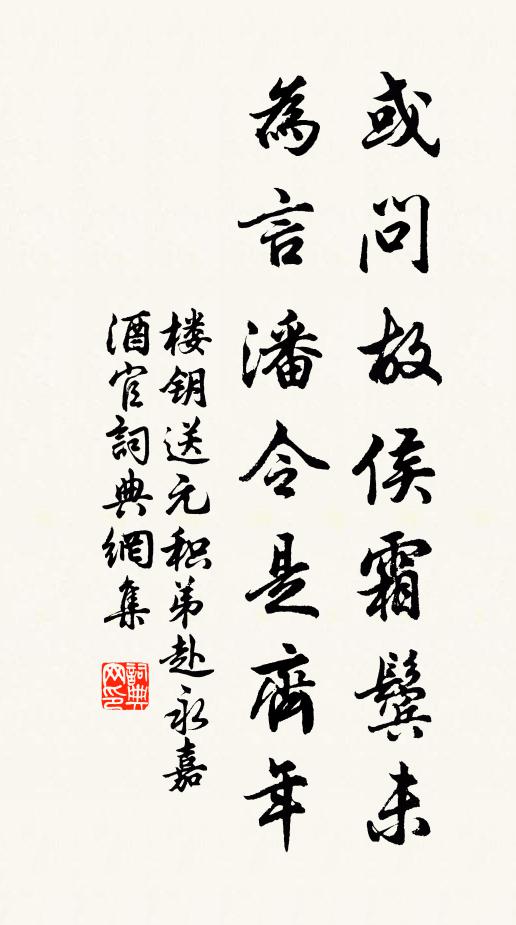 或問故侯霜鬢未
為言潘令是齊年
楼钥送元积弟赴永嘉
酒官詞典網集
詞典网印